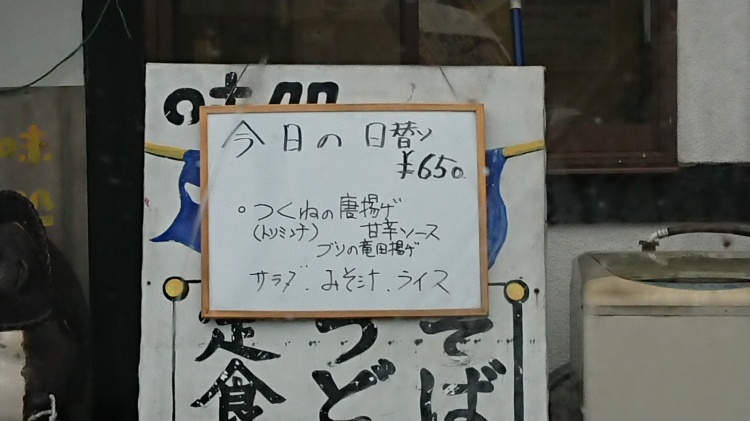 今日の日替り
¥650
・つくねの唐揚げ
(トリミンチ) 甘辛ソース
ブリの竜田揚げ
サラダ、みそ汁、ライス
定食
うどん
そば